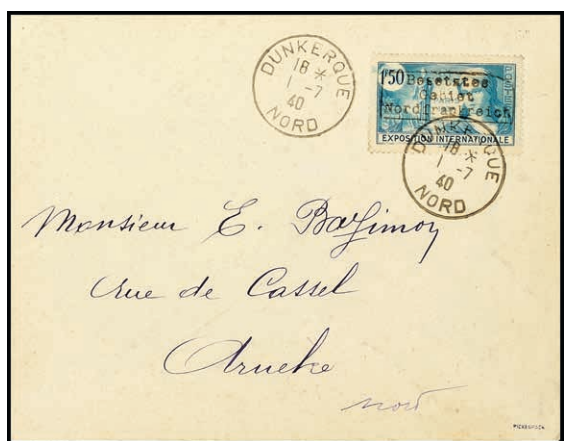 DUNKERQUE
18 *
1 -7
40
NORD
1f50
Besetztes
Gebiet
Nordfrankreich
EXPOSITION INTERNATIONALE
DUNKERQUE
18 *
1 -7
40
NORD
Monsieur E.
rue de Cassel
Arneke
nord